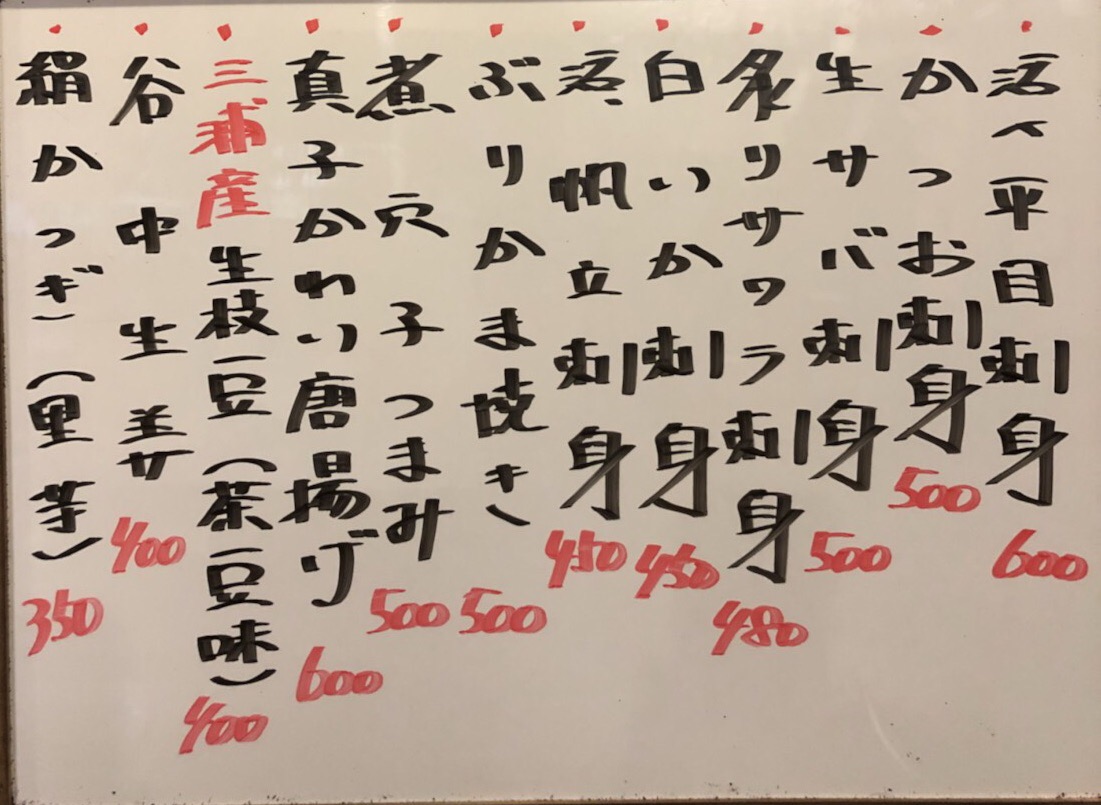 活〆平目刺身 600
かつお刺身 500
生サバ刺身 500
炙りサワラ刺身 480
白いか刺身 450
活帆立刺身 450
ぶりかま焼き 500
煮穴子つまみ 500
真子かれい唐揚げ 600
三浦産生枝豆(茶豆味) 400
谷中生姜 400
絹かつぎ(里芋) 350